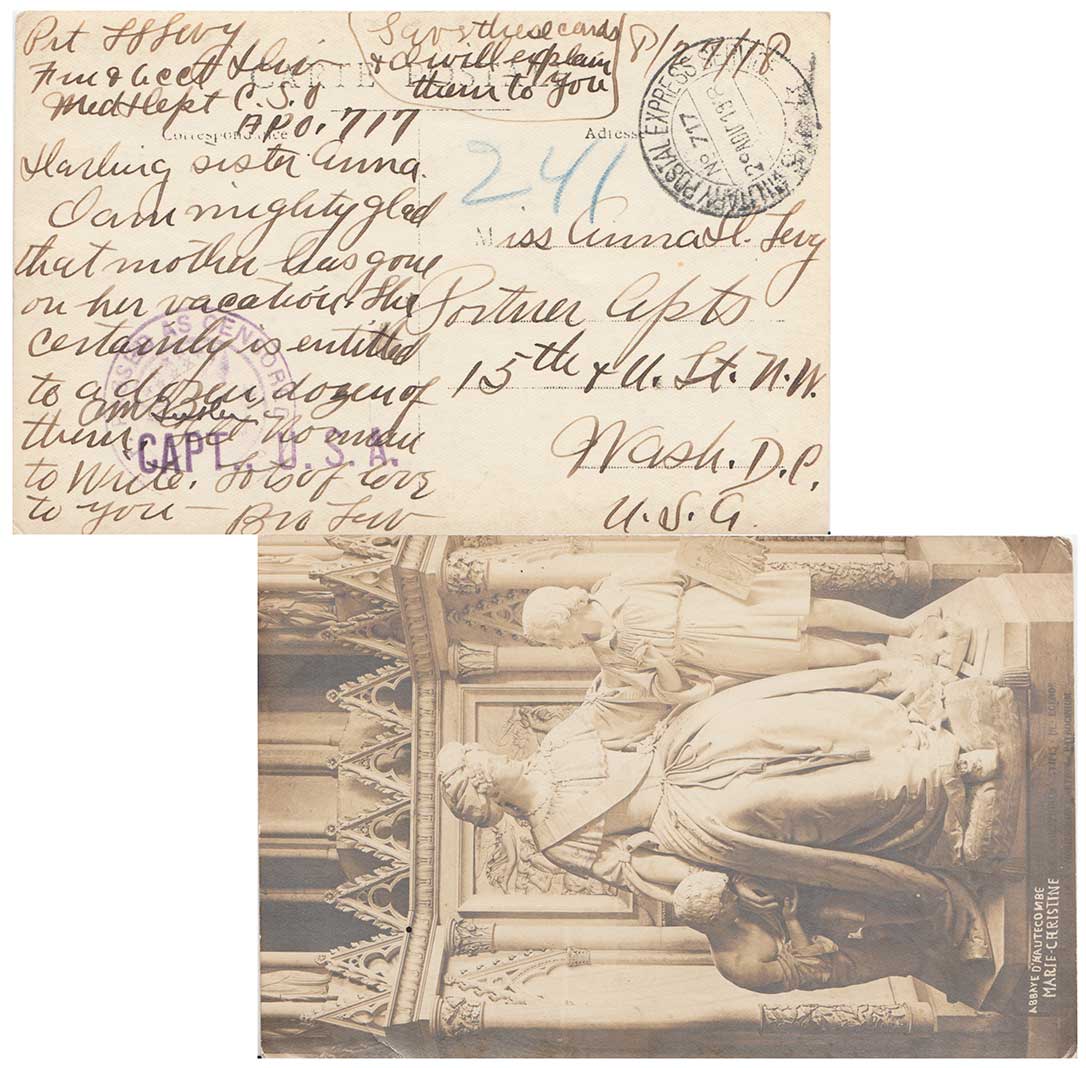 Pvt LSLevy
Fin & Acct Div
Med Dept C.S.O
A.P.O. 717
Save these cards
& I will explain
them to you
8/27/18
CARTE POSTALE
Correspondance
Adresse
241
MILITARY POSTAL EXPRESS
No 717
Darling sister Anna.
I am mighty glad
that mother has gone
on her vacation. She
certainly is entitled
to a dozen, dozen of
them. No man
to Write. Lots of love
to you — Bro Lew
PASSED AS CENSORED
CAPT., U.S.A.
Miss Anna H. Levy
Portner Apts
15th & U. St. N.W.
Wash. D.C.
U.S.A.
ABBAYE D'HAUTECOMBE
MARIE-CHRISTINE